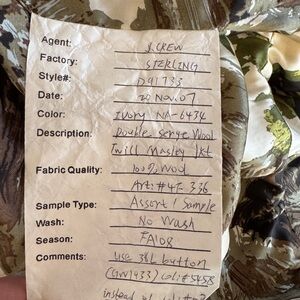 Agent: J.CREW
Factory: STERLING
Style#: 091733
Date: 20 Nov.07
Color: Ivory NA-6434
Description: Double Serge Wool
Twill Masley JKT
Fabric Quality: 100% Wool
Art: #4F-336
Sample Type: Assort / Sample
Wash: No Wash
Season: FA108
Comments: use 36L button
(GW1433) col:# 5458
instead of